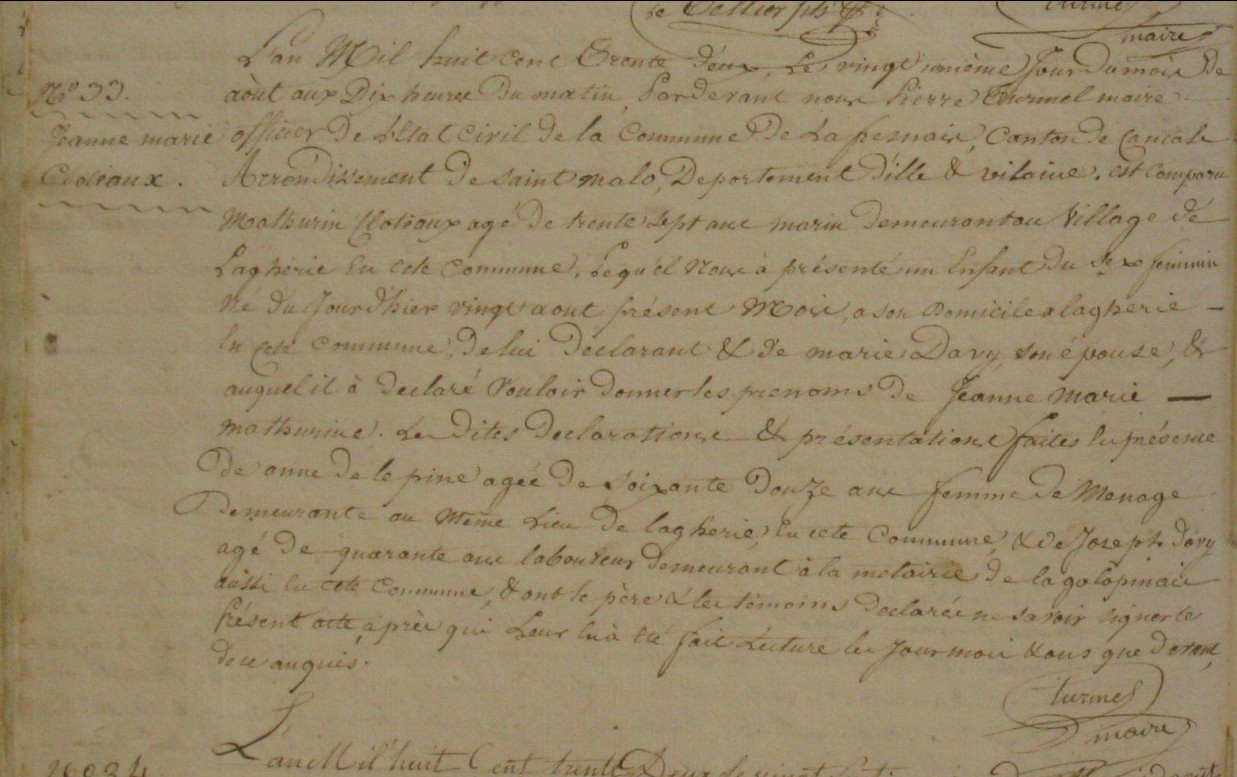 Le Tellier fils
turmel
maire
L'an Mil huit cent Trente deux, Le vingt unième Jour du mois de
N° 33.
août aux Dix heures du matin, Pardevant nous Pierre Turmel maire
Jeanne marie
officier De L'Etat Civil de la Commune De La fresnais, Canton de Cancale
Cloteaux.
Arrondissement De Saint malo, Departement d'ille & vilaine. est Comparu
Mathurin Cloteaux agé De trente Sept ans marin demeurant au Village de
Lagherie En cete Commune, Lequel Nous à présenté un Enfant du Sex feminin
Né du Jour d'hier vingt aout présent Mois, a son Domicile a lagherie —
En cete Commune, De lui Declarant & De marie Davy son épouse, &
auquel il à Declaré Vouloir Donner les prenoms De Jeanne Marie —
mathurine. Les Dites Declarations & présentations faites En présence
De anne De lepine agée De Soixante Douze ans femme De Menage
Demeurante au Même Lieu De lagherie, En cete Commune, & de Joseph Davy
agé De quarante ans laboureur demeurant à la metairie De la galopinais
aussi En cete Commune, & ont le père & les témoins Declarés ne savoir signer le
Présent acte, après qui Leur En à Eté fait Lecture les Jour mois & ans que Devant,
turmel
maire
L'an Mil huit Cent trente Deux, le vingt
N° 34